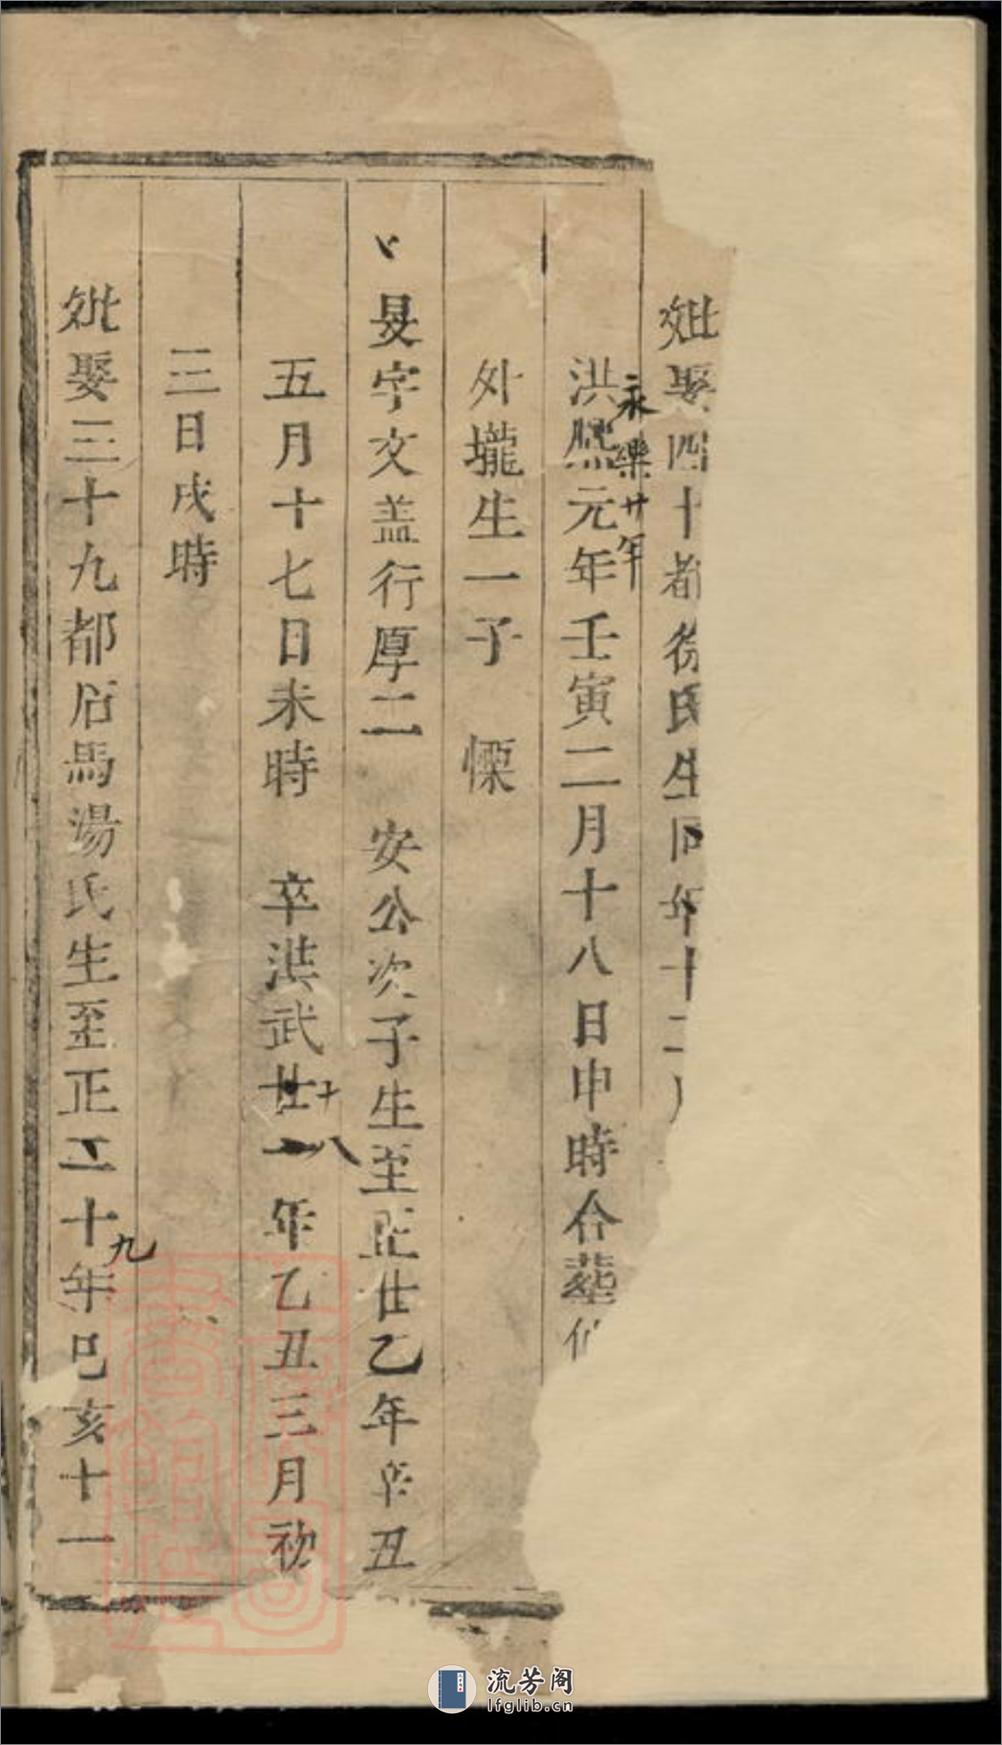 妣娶四十都徐氏生同年十二月
洪熙元年壬寅二月十八日申時合葬
永樂廿年
外壠生一子 慄
旻字文盖行厚二 安公次子生至正廿乙年辛丑
五月十七日未時 卒洪武廿一年乙丑三月初
十八
三日戌時
妣娶三十九都石馬湯氏生至正二十年己亥十一
九
流芳阁
lfglib.cn